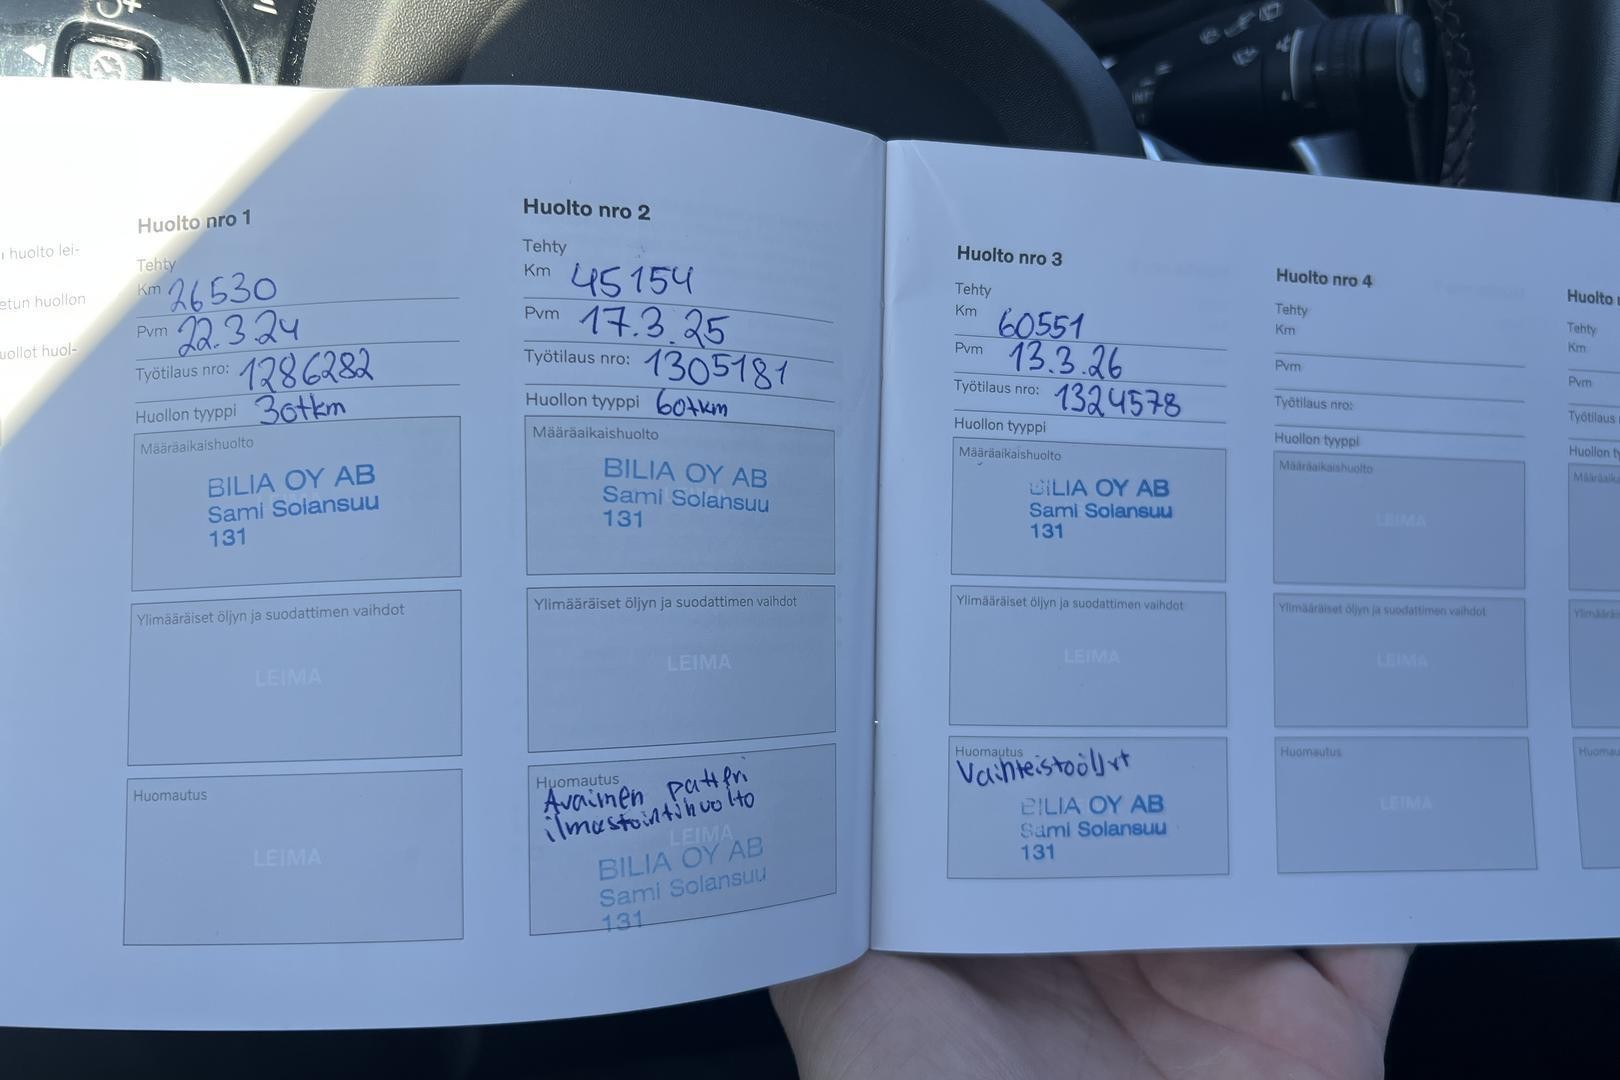 i huolto lei-
etun huollon
uollot huol-
Huolto nro 1
Tehty
Km 26530
Pvm 22.3.24
Työtilaus nro: 1286282
Huollon tyyppi 30tkm
Määräaikaishuolto
BILIA OY AB
Sami Solansuu
131
Ylimääräiset öljyn ja suodattimen vaihdot
LEIMA
Huomautus
LEIMA
Huolto nro 2
Tehty
Km 45154
Pvm 17.3.25
Työtilaus nro: 1305181
Huollon tyyppi 60tkm
Määräaikaishuolto
BILIA OY AB
Sami Solansuu
131
Ylimääräiset öljyn ja suodattimen vaihdot
LEIMA
Huomautus
Avaimen patteri
ilmastointihuolto
LEIMA
BILIA OY AB
Sami Solansuu
131
Huolto nro 3
Tehty
Km 60551
Pvm 13.3.26
Työtilaus nro: 1324578
Huollon tyyppi
Määräaikaishuolto
BILIA OY AB
Sami Solansuu
131
Ylimääräiset öljyn ja suodattimen vaihdot
LEIMA
Huomautus
Vaihteistoöljyt
BILIA OY AB
Sami Solansuu
131
Huolto nro 4
Tehty
Km
Pvm
Työtilaus nro:
Huollon tyyppi
Määräaikaishuolto
LEIMA
Ylimääräiset öljyn ja suodattimen vaihdot
LEIMA
Huomautus
LEIMA
Huolto
Tehty
Km
Pvm
Työtilaus
Huollon ty
Määräaika
Ylimääräi
Huomau